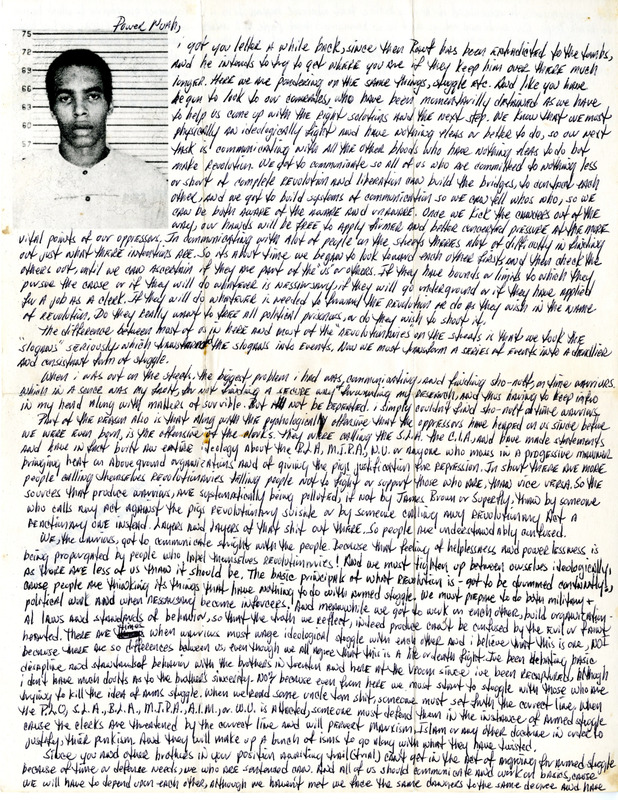 Power Nuah,
75
72
69
66
63
60
57
i got you letter a while back, since then Rawt has been extradicted to the tombs,
and he intends to try to get where you are if they keep him over there much
longer. Here we are pondering on the same things, stuggle etc. And like you have
begun to look to our comrades, who have been momentarily detained as we have
to help us come up with the right solutions and the next step. We know that we must
physically an ideologically fight and have nothing eleas or better to do, so our next
task is communicating with all the other bloods who have nothing eleas to do but
make revolution. We got to communicate so all of us who are committed to nothing less
or short of complete revolution and liberation can build the bridges, to contact each
other, and we got to build systems of communication so we can tell whos who, so we
can be both aware of the aware and unaware. Once we kick the cankers out of the
way, our hands will be free to apply firmer and better concerted pressure at the more
vital points of our oppressors. In communicating with alot of people on the steets theres alot of difficulty in finding
out just what there intentions are. So its about time we began to look toward each other firsts and then check the
others out, until we can ascertain if they are part of the us or others. If they have bounds or limits to which they
pursue the cause or if they will do whatever is nessessary, if they will go underground or if they have applied
for a job as a clerk. If they will do whatever is needed to forward the revolution or do as they wish in the name
of revolution. Do they really want to free all political prisoners, or do they wish to shoot it.
The difference between most of us in here and most of the "revolutionaries on the steets is that we took the
"slogans" seriously which the slogans into events. Now we must transform a series of events into a deadlier
and consistant path of stuggle.
When i was out on the steets, the biggest problem i had was, communicating, and finding sho-nuff, on time warriors.
Which in a sence was my fault, for not finding a secure way of forwarding my research, and thus having to keep info
in my head along with matters of survible. But i'll not be repeated. i simply couldn't find sho-nuff ontime warriors.
Part of the reason also is that along with the pychological offensive that the oppressors have heaped on us since before
we were even born, is the offensive of the clerks. They were calling the S.L.A. the C.I.A., and have made statements
and have in fact built an entire ideology about the B.L.A, M.I.R.A.S, N.U. or anyone who moves in a progressive manner
bringing heat on above ground organizations and of giving the pigs justification for repression. In short there are more
people calling themselves revolutionaries telling people not to fight or support those who are, than vice versa. So the
sources that produce warriors, are sustematically being polluted, if not by James Brown or Superfly, than by someone
who calls any act against the pigs revolutionary suiside or by someone calling any revolutionary act a
reactionary one instead. Layers and layers of that shit out there. So people are understandably confused.
We, the warriors, got to communicate straight with the people. Because that feeling of helplessness and powerlessness is
being propagated by people who label themselves revolutionaries! And we must tighten up between ourselves ideologically,
as there are less of us than it should be. The basic principals of what revolution is - got to be drummed constantly,
cause people are thinking its things that have nothing to do with armed stuggle. We must prepare to do both military &
political work and when nessessary become enforcers. And meanwhile we got to work on each other, build organization-
al laws and standards of behavior, so that the truth we reflect, indeed produce can't be confused by the evil or faint
hearted. There are times when warriors must wage ideological stuggle with each other and i believe that this is one, not
because there are so differences between us, even though we all agree that this is a life or death fight. I've been debating basic
disipline and standards of behavior with the brothers in Trenton and here at the Vroom since i've been recaptured, although
i don't have much doubts as to the brothers sincerity. Not because even from here we must start to stuggle with those who are
trying to kill the idea of arms stuggle. When we read some uncle tom shit, someone must set forth the correct line. When
the P.L.O., S.L.A., B.L.A., M.I.R.A., A.I.M., or W.U. is attacted, someone must defend them in the instance of armed stuggle
cause the clerks are threatened by the correct line and will pervert Marxism, Islam or any other doctrine in order to
justify, thier punkism. And they will make up a bunch of isms to go along with what they have twisted.
Since you and other brothers in your position awaiting trail (trial) can't get in the act of arguing for armed stuggle
because of time or defense needs, we who are sentenced can. And all of us should communicate and work on basics, cause
we will have to depend upon each other, although we haven't met we face the same dangers to the same degree and have